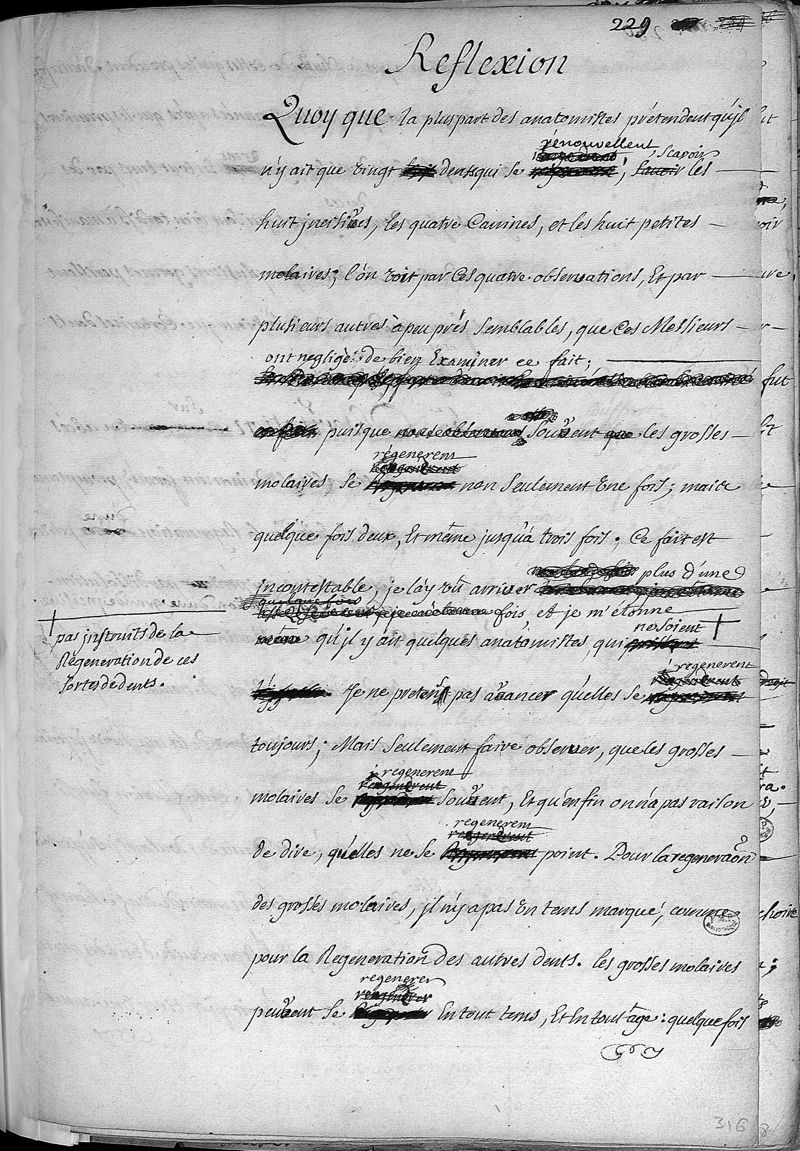 229
Reflexion
Quoy que la pluspart des anatomistes prétendent qu'jl
n'y ait que vingt dents qui se rénouvellent, Scavoir les
huit jncisives, les quatre Canines, et les huit petites
molaires; l'on voit par Ces quatre observations, Et par
plusieurs autres àpeu prés Semblables, que Ces Messieurs
ont negligé de bien Examiner ce fait;
puisque Souvent les grosses
molaires se régenerent non Seulement Une fois; mais
quelque fois deux, Et même jusqu'à trois fois; Ce fait est
jncontestable, je l'ay vû arriver plus d'une
fois et je m'étonne
qu'jl y ait quelques anatomistes, qui ne soient
pas jnstruits de la
Régeneration de ces
sortes de dents.
Je ne pretens pas avancer qu'elles se régenerent
toujours; Mais Seulement faire observer, que les grosses
molaires se régenerent Souvent, Et qu'enfin on n'a pas raison
de dire, qu'elles ne se regenerent point. Pour la regeneraõn
des grosses molaires, jl n'y a pas Un tems marqué, comme
pour la Regeneration des autres dents. les grosses molaires
peuvent se regenerer En tout tems, Et En tout age: quelque fois
316